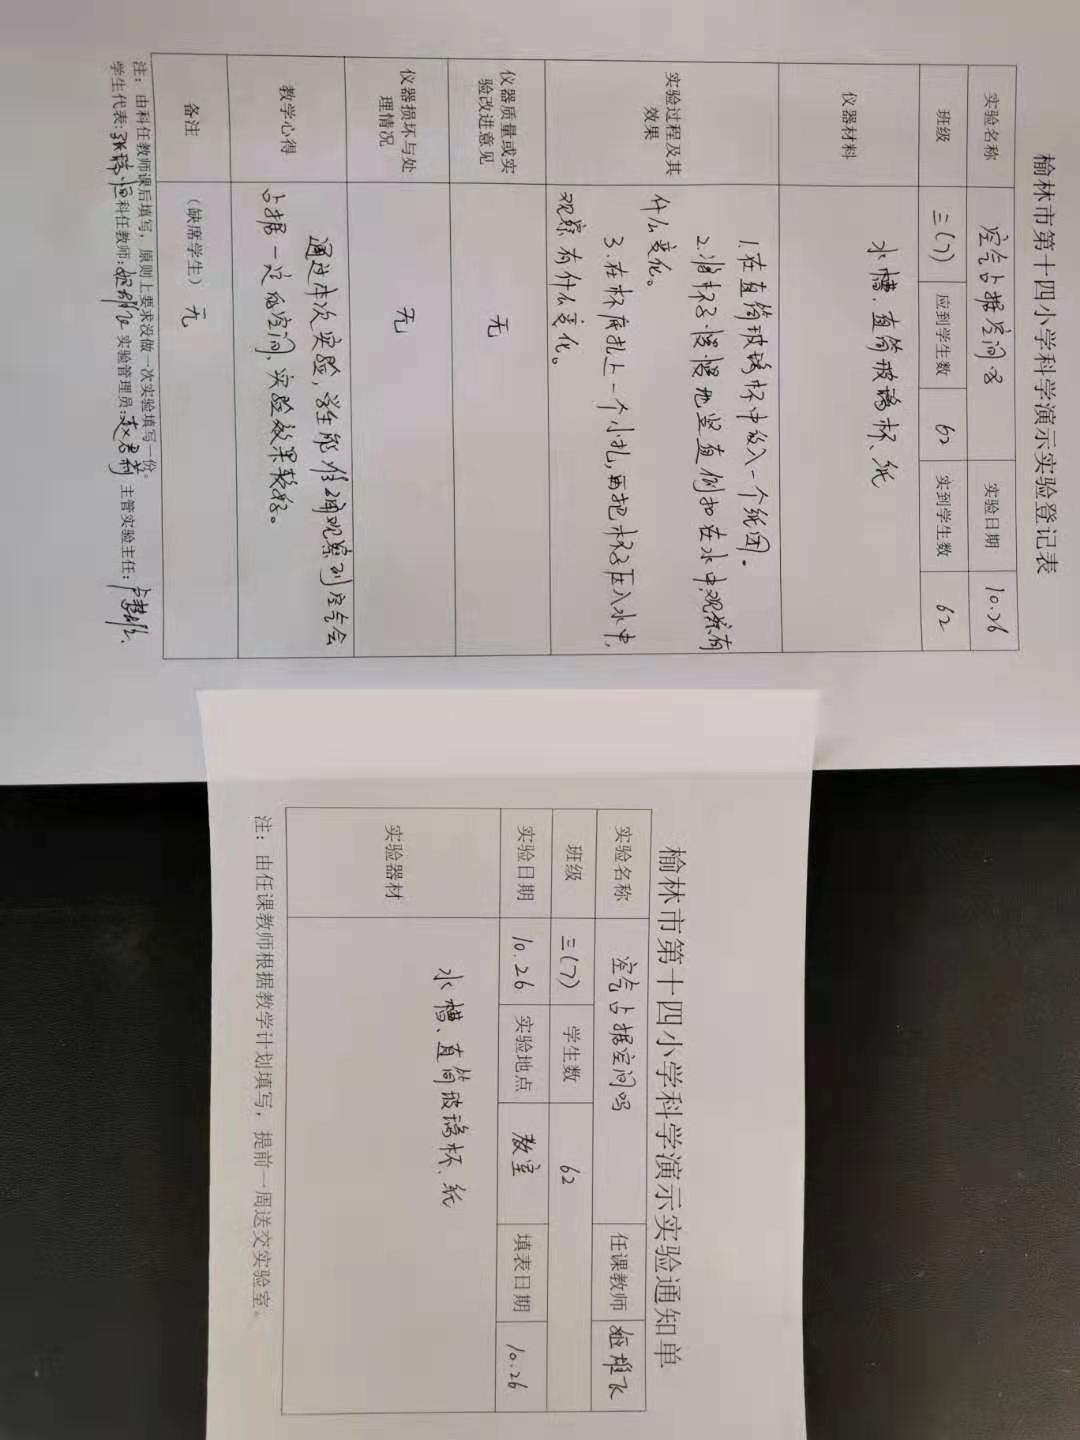 榆林市第十四小学科学演示实验登记表
实验名称 空气占据空间吗 实验日期 10.26
班级 三(7) 应到学生数 62 实到学生数 62
仪器材料 水槽、直筒玻璃杯、纸
实验过程及其效果
1.在直筒玻璃杯中放入一个纸团。
2.将杯子慢慢地竖直倒扣在水中,观察有
什么变化。
3.在杯底扎上一个小孔,再把杯子压入水中,
观察有什么变化。
仪器质量或实验改进意见 无
仪器损坏与处理情况 无
教学心得
通过本次实验,学生能准确观察到空气会
占据一定的空间,实验效果较好。
备注 (缺席学生) 无
注:由科任教师课后填写,原则上要求没做一次实验填写一份。
学生代表: 科任教师:姬雄飞 实验管理员: 主管实验主任:
榆林市第十四小学科学演示实验通知单
实验名称 空气占据空间吗 任课教师 姬雄飞
班级 三(7) 学生数 62
实验日期 10.26 实验地点 教室 填表日期 10.26
实验器材 水槽、直筒玻璃杯、纸
注:由任课教师根据教学计划填写,提前一周送交实验室。